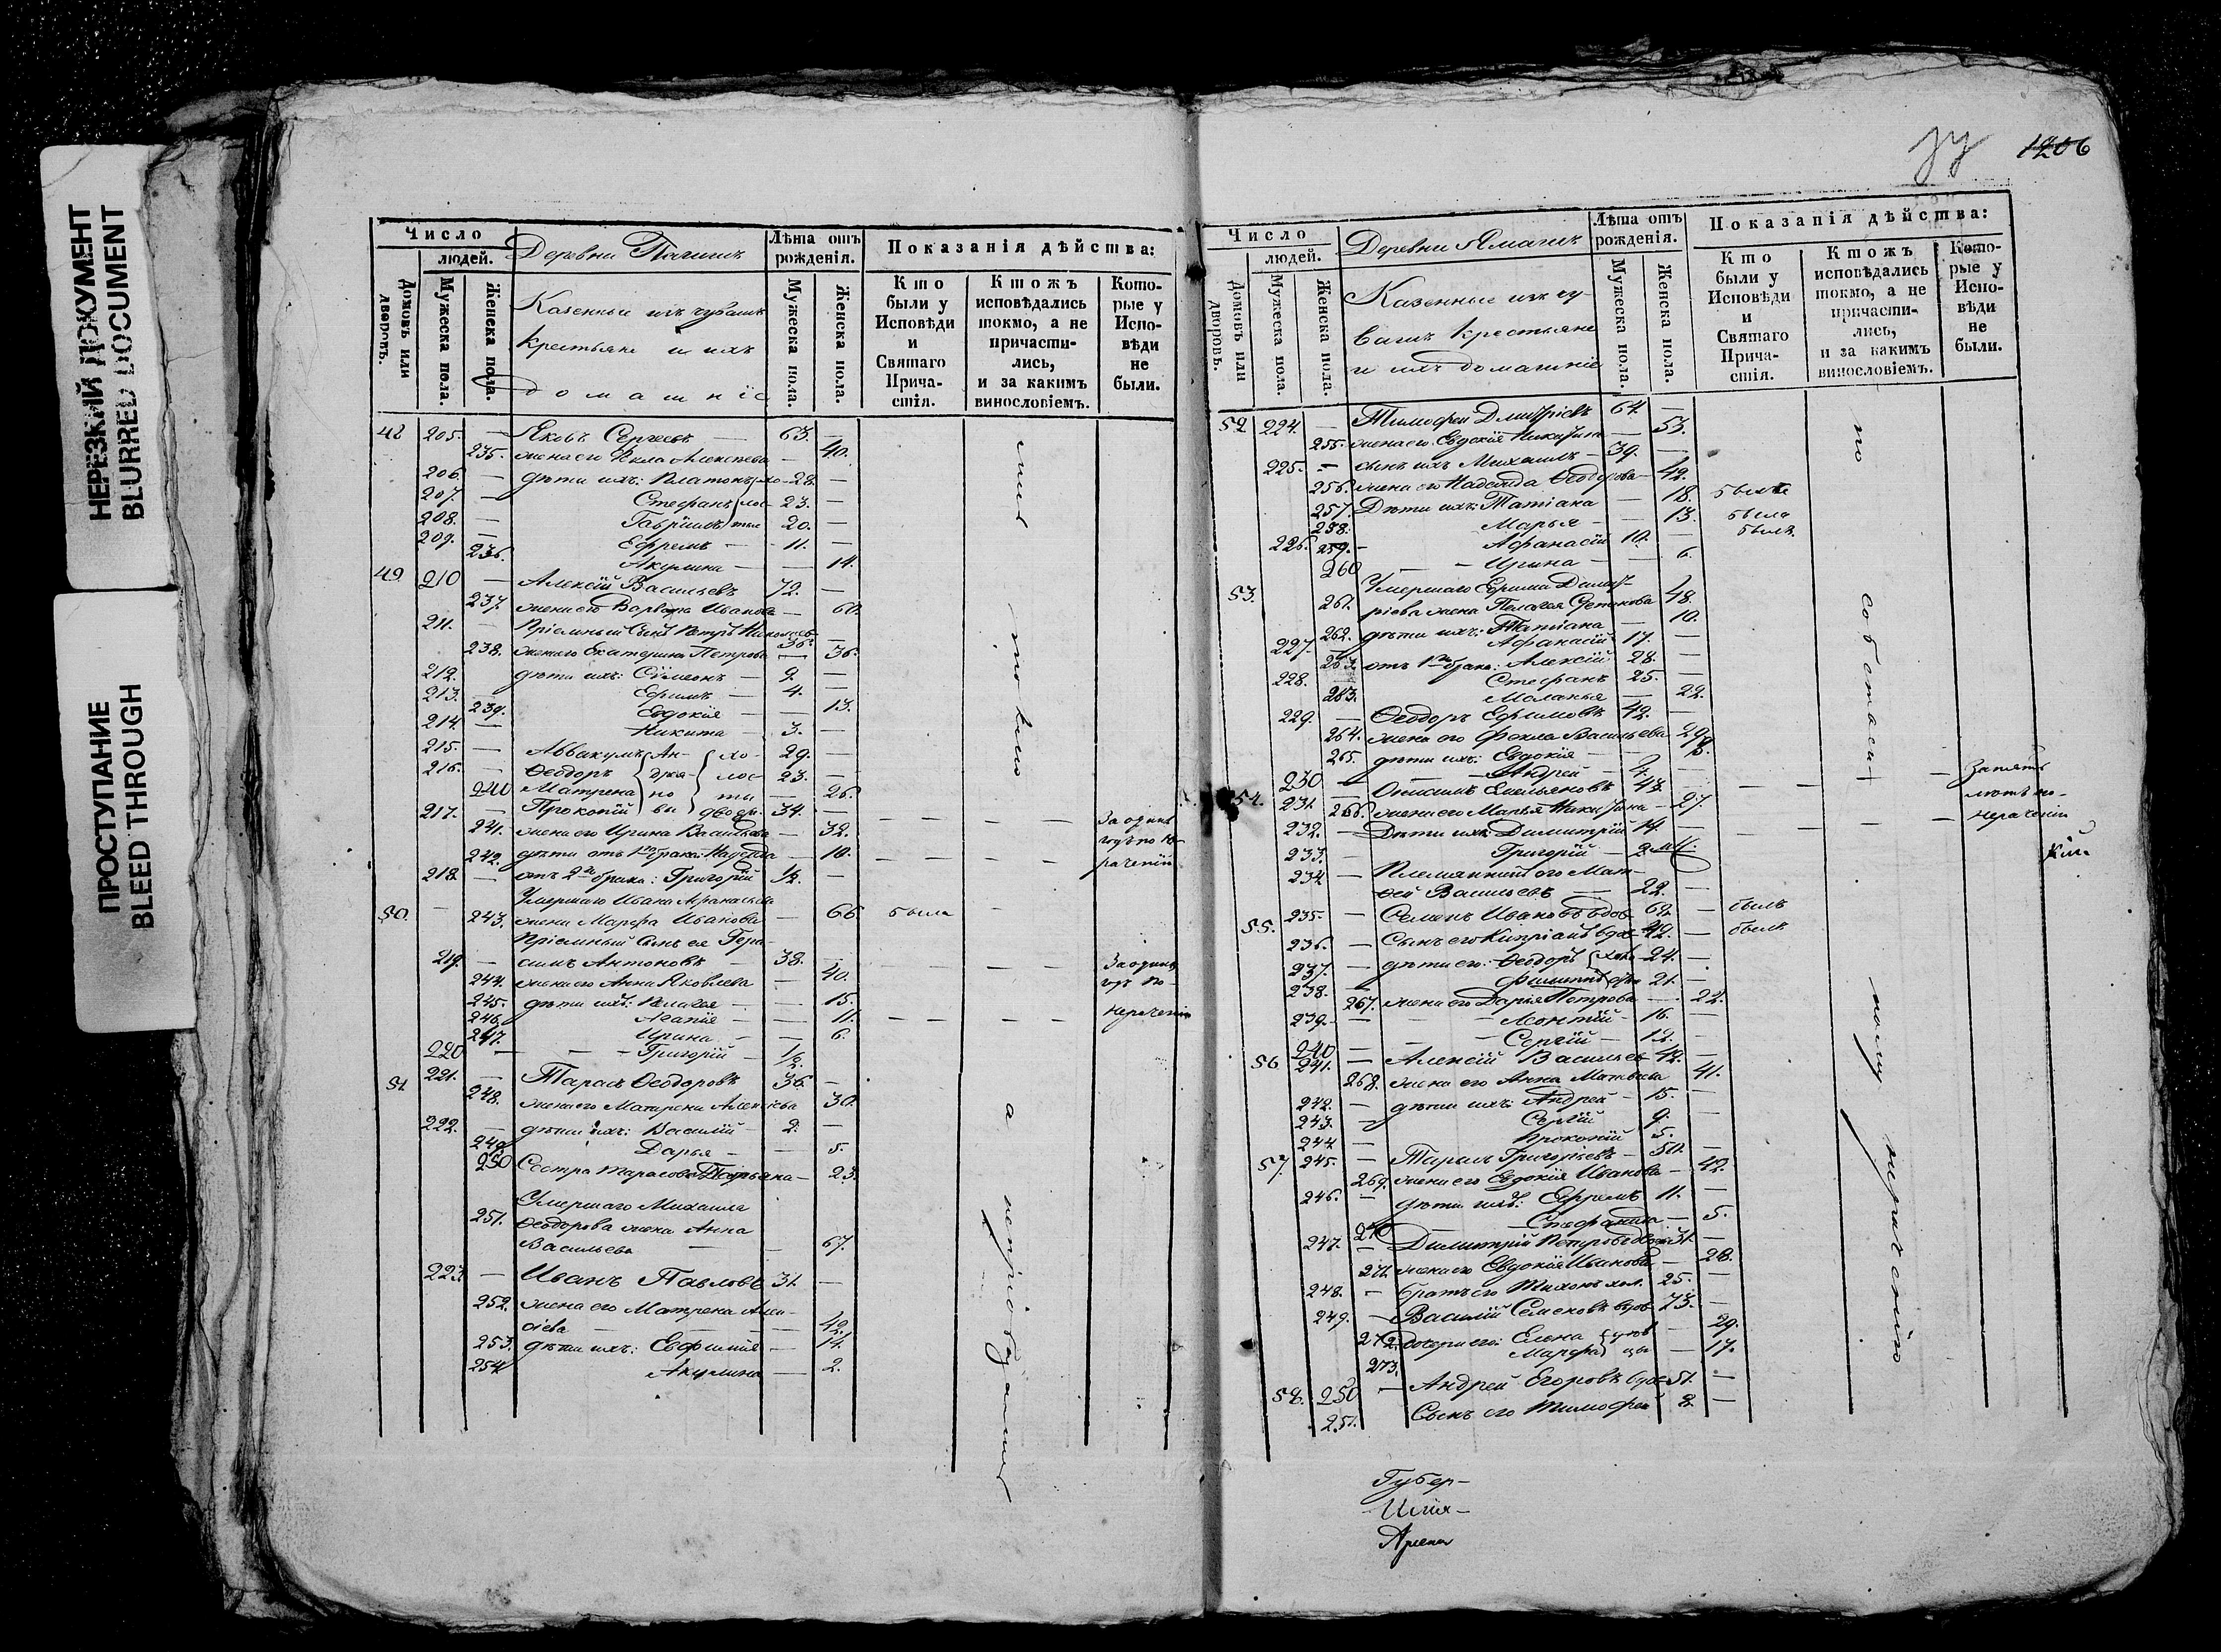 НЕРЕЗКИЙ ДОКУМЕНТ
BLURRED DOCUMENT
ПРОСТУПАНИЕ
BLEED THROUGH
Число
людей.
Домовъ или дворовъ.
Мужеска пола.
Женска пола.
Деревни
Казенные изъ чувашъ
крестьяне и ихъ
домашніе
Лѣта отъ рожденія.
Мужеска пола.
Женска пола.
Показанія дѣйства:
Кто были у Исповѣди и Святаго Причастія.
Ктожъ исповѣдались токмо, а не причастились, и за какимъ винословіемъ.
Которые у Исповѣди не были.
205. — Яковъ Сергеевъ — 63. —
235. жена его Фекла Алексѣева — 40.
206. — дѣти ихъ: Платонъ хо- 28. —
207. — Стефанъ лос- 23. —
208. — Гаврiилъ тые 20. —
209. — Ефремъ — 11. —
236. Акулина — — 14.
49 210 — Алексій Васильевъ 72. —
237. жена его Варвара Иванова — 60.
211. — Пріемный Сынъ Петръ Николаевъ 36. —
238. жена его Екатерина Петрова — 36.
212. дѣти ихъ: Сѵмеонъ — 9. —
213. — Ефимъ — 4. —
239. Евдокія — — 13.
214. — Никита — 3. —
215. — Аввакумъ Ан- хо- 29. —
216. — Ѳеодоръ дрея- лос- 23. —
240 Матрена но ты — 26.
217. — Прокопій вы двоев. 34. —
241. жена его Ирина Васильева — 32. — — — — За однимъ
242. дѣти отъ 1го брака: Надежда — 10. — — — —
218. — отъ 2го брака: Григорій 1/2. —
Умершаго Ивана Афанасьева
50. — 243. жена Марфа Иванова — 66. была —
Пріемный Сынъ ея Гера-
219. — симъ Антоновъ — 38. —
244. жена его Анна Яковлева — 40. — — —
245. дѣти ихъ: Пелагея — — 15.
246. Агапія — — 11. — — — — нераченію
247. Ирина — — 6.
220 — — — Григорій — 1/2.
51 221. — Тарасъ Ѳеодоровъ 36. —
248. жена его Матрена Алексіева 30.
222. — дѣти ихъ: Василій — 2. —
249 Дарья — — 5.
250 Сестра Тарасова Татьяна — 23.
Умершаго Михаила
251. Ѳеодорова жена Анна
Васильева — — 67.
223. — Иванъ Павловъ 31. —
252. жена его Матрена Алек-
сіева — — — 42.
253. дѣти ихъ: Евфимія — 14.
254 Акулина — 2.
токмо
а
1206
Число
людей.
Домовъ или дворовъ.
Мужеска пола.
Женска пола.
Деревни
Казенные изъ чу-
вашъ крестьяне
и ихъ домашніе
Лѣта отъ рожденія.
Мужеска пола.
Женска пола.
Показанія дѣйства:
Кто были у Исповѣди и Святаго Причастія.
Ктожъ исповѣдались токмо, а не причастились, и за какимъ винословіемъ.
Которые у Исповѣди не были.
52 224. — Тимофей Дмитріевъ 64. —
255. жена его Евдокія Никитина — 53.
225. — сынъ ихъ Михаилъ — 39. —
256. жена его Надежда Ѳеодорова — 42.
257. Дѣти ихъ: Татіана — 18. была
258. Марья — — 13. была
226. 259. — Афанасій 10. — былъ
260 — — Ирина — — 6.
53. Умершаго Ефима Димит-
261. ріева жена Пелагея Степанова 48.
262. дѣти ихъ: Татіана — 10.
227. — Афанасій 17. —
отъ 1го брака: Алексій 28. —
228. Стефанъ 25. —
263. Меланья — 22.
229. — Ѳеодоръ Ефимовъ 42. —
264. жена его Фекла Васильева 29
265. дѣти ихъ: Евдокія —
230 — — Андрей — 4. —
54. 231. — Онисимъ Емельяновъ 43. — — —
266. жена его Марья Никитина — 27.
232. — Дѣти ихъ: Димитрій 14. — — — нераченію
233. — Григорій — 2.
234 — Племянникъ его Мат-
ѳей Васильевъ — 22. —
55. 235. — Семенъ Ивановъ вдов 62. — былъ
236. — Сынъ его Кипріанъ вдов 42. — былъ
237. — дѣти его: Ѳеодоръ 24. —
238. — Филиппъ 21. —
267. жена его Дарія Петрова — 22.
239. — — Леонтій — 16. —
240 — — Сергій — 12. —
56 241. — Алексій Васильев 42. —
268. жена его Анна Матвѣева 41.
242. — дѣти ихъ: Андрей — 15. —
243. — Сергій 9. —
244 — Прокопій 5. —
57 245. — Тарасъ Григорьевъ — 50. —
269. жена его Евдокія Иванова — 42.
246. — дѣти ихъ: Ефремъ 11. —
270 — Стефанида — 5.
247. — Димитрій Петровъ 31. —
271. жена его Евдокія Иванова — 28.
248. — братъ его Тихонъ хол. 25. —
249. — Василій Семеновъ вдов 73. —
272. дочери его: Елена — 29.
273. Марфа — 17.
58. 250 — Андрей Егоровъ вдов 51. —
251. Сынъ его Тимофей 8. —
по
собственному
нераченію
Губер-
Илія-